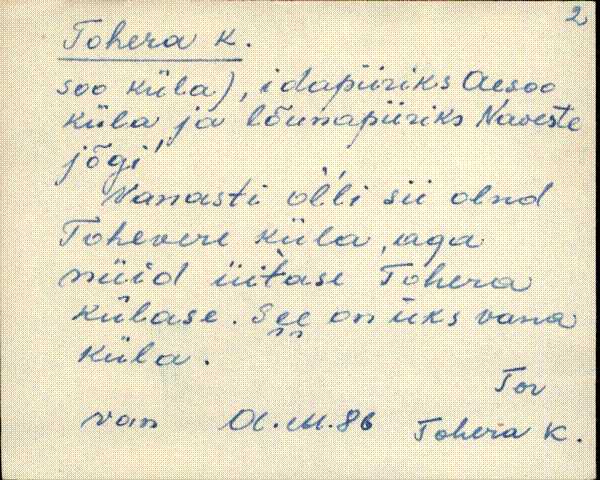 2
Tohera k.
soo küla), idapiiriks Aesoo
küla ja lõunapiiriks Naveste
jõgi.
Vanasti õlli sii olnd
Tohevere küla, aga
nüid üitase Tohera
külase. See on üks vana
küla.
Tor
van A.M.86 Tohera k.